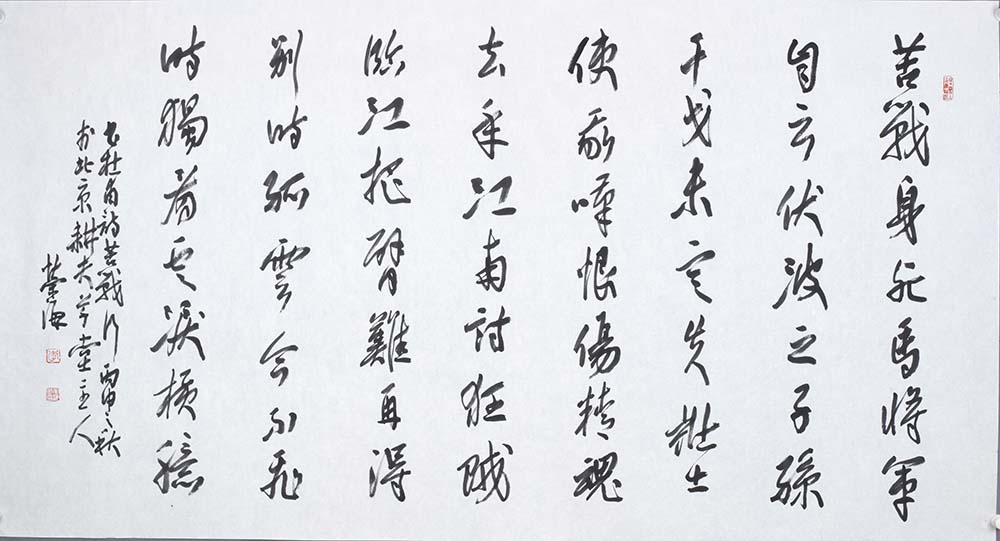 苦戰身死馬將軍
自云伏波之子孫
干戈未定失壯士
使我嘆恨傷精魂
去年江南討狂賊
臨江把臂難再得
別時孤雲今不飛
時獨看雲淚橫臆
書杜甫詩苦戰行 丙申之秋
於北京耕夫草堂主人